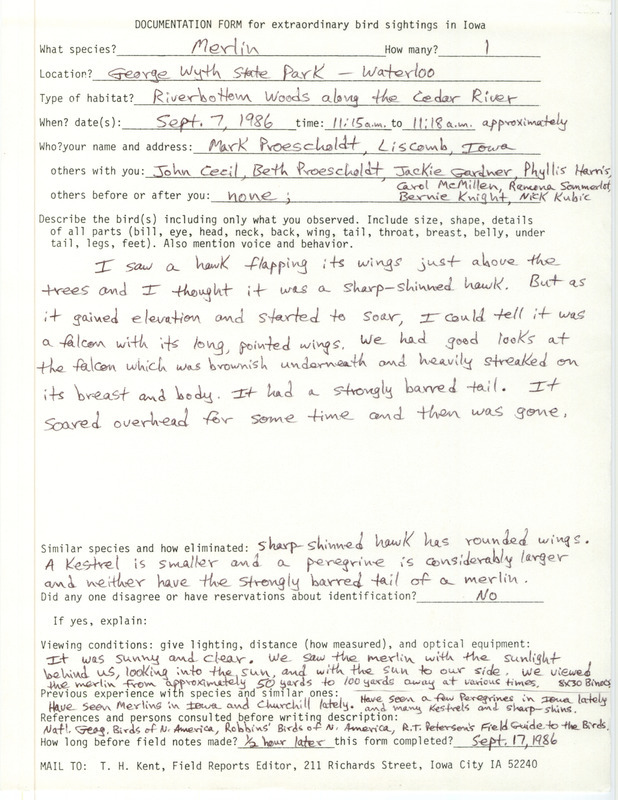 DOCUMENTATION FORM for extraordinary bird sightings in Iowa
What species? Merlin How many? 1
Location? George Wyth State Park - Waterloo
Type of habitat? Riverbottom Woods along the Cedar River
When? date(s): Sept. 7, 1986 time: 11:15 a.m. to 11:18 a.m. approximately
Who? your name and address: Mark Proescholdt, Liscomb, Iowa
others with you: John Cecil, Beth Proescholdt, Jackie Gardner, Phyllis Harris,
Carol McMillen, Ramona Sommerlot,
others before or after you: none; Bernie Knight, Nick Kubic
Describe the bird(s) including only what you observed. Include size, shape, details
of all parts (bill, eye, head, neck, back, wing, tail, throat, breast, belly, under
tail, legs, feet). Also mention voice and behavior.
I saw a hawk flapping its wings just above the
trees and I thought it was a sharp-shinned hawk. But as
it gained elevation and started to soar, I could tell it was
a falcon with its long, pointed wings. We had good looks at
the falcon which was brownish underneath and heavily streaked on
its breast and body. It had a strongly barred tail. It
soared overhead for some time and then was gone.
Similar species and how eliminated: Sharp-shinned hawk has rounded wings.
A Kestrel is smaller and a peregrine is considerably larger
and neither have the strongly barred tail of a merlin.
Did any one disagree or have reservations about identification? No
If yes, explain:
Viewing conditions: give lighting, distance (how measured), and optical equipment:
It was sunny and clear. We saw the merlin with the sunlight
behind us, looking into the sun, and with the sun to our side. We viewed
the merlin from approximately 50 yards to 100 yards away at various times. 8X30 Binocs
Previous experience with species and similar ones: Have seen a few Peregrines in Iowa lately
Have seen Merlins in Iowa and Churchill lately. and many Kestrels and sharp-shins.
References and persons consulted before writing description:
Natl. Geog. Birds of N. America, Robbins' Birds of N. America, R.T. Peterson's Field Guide to the Birds.
How long before field notes made? ½ hour later this form completed? Sept. 17, 1986
MAIL TO: T. H. Kent, Field Reports Editor, 211 Richards Street, Iowa City IA 52240